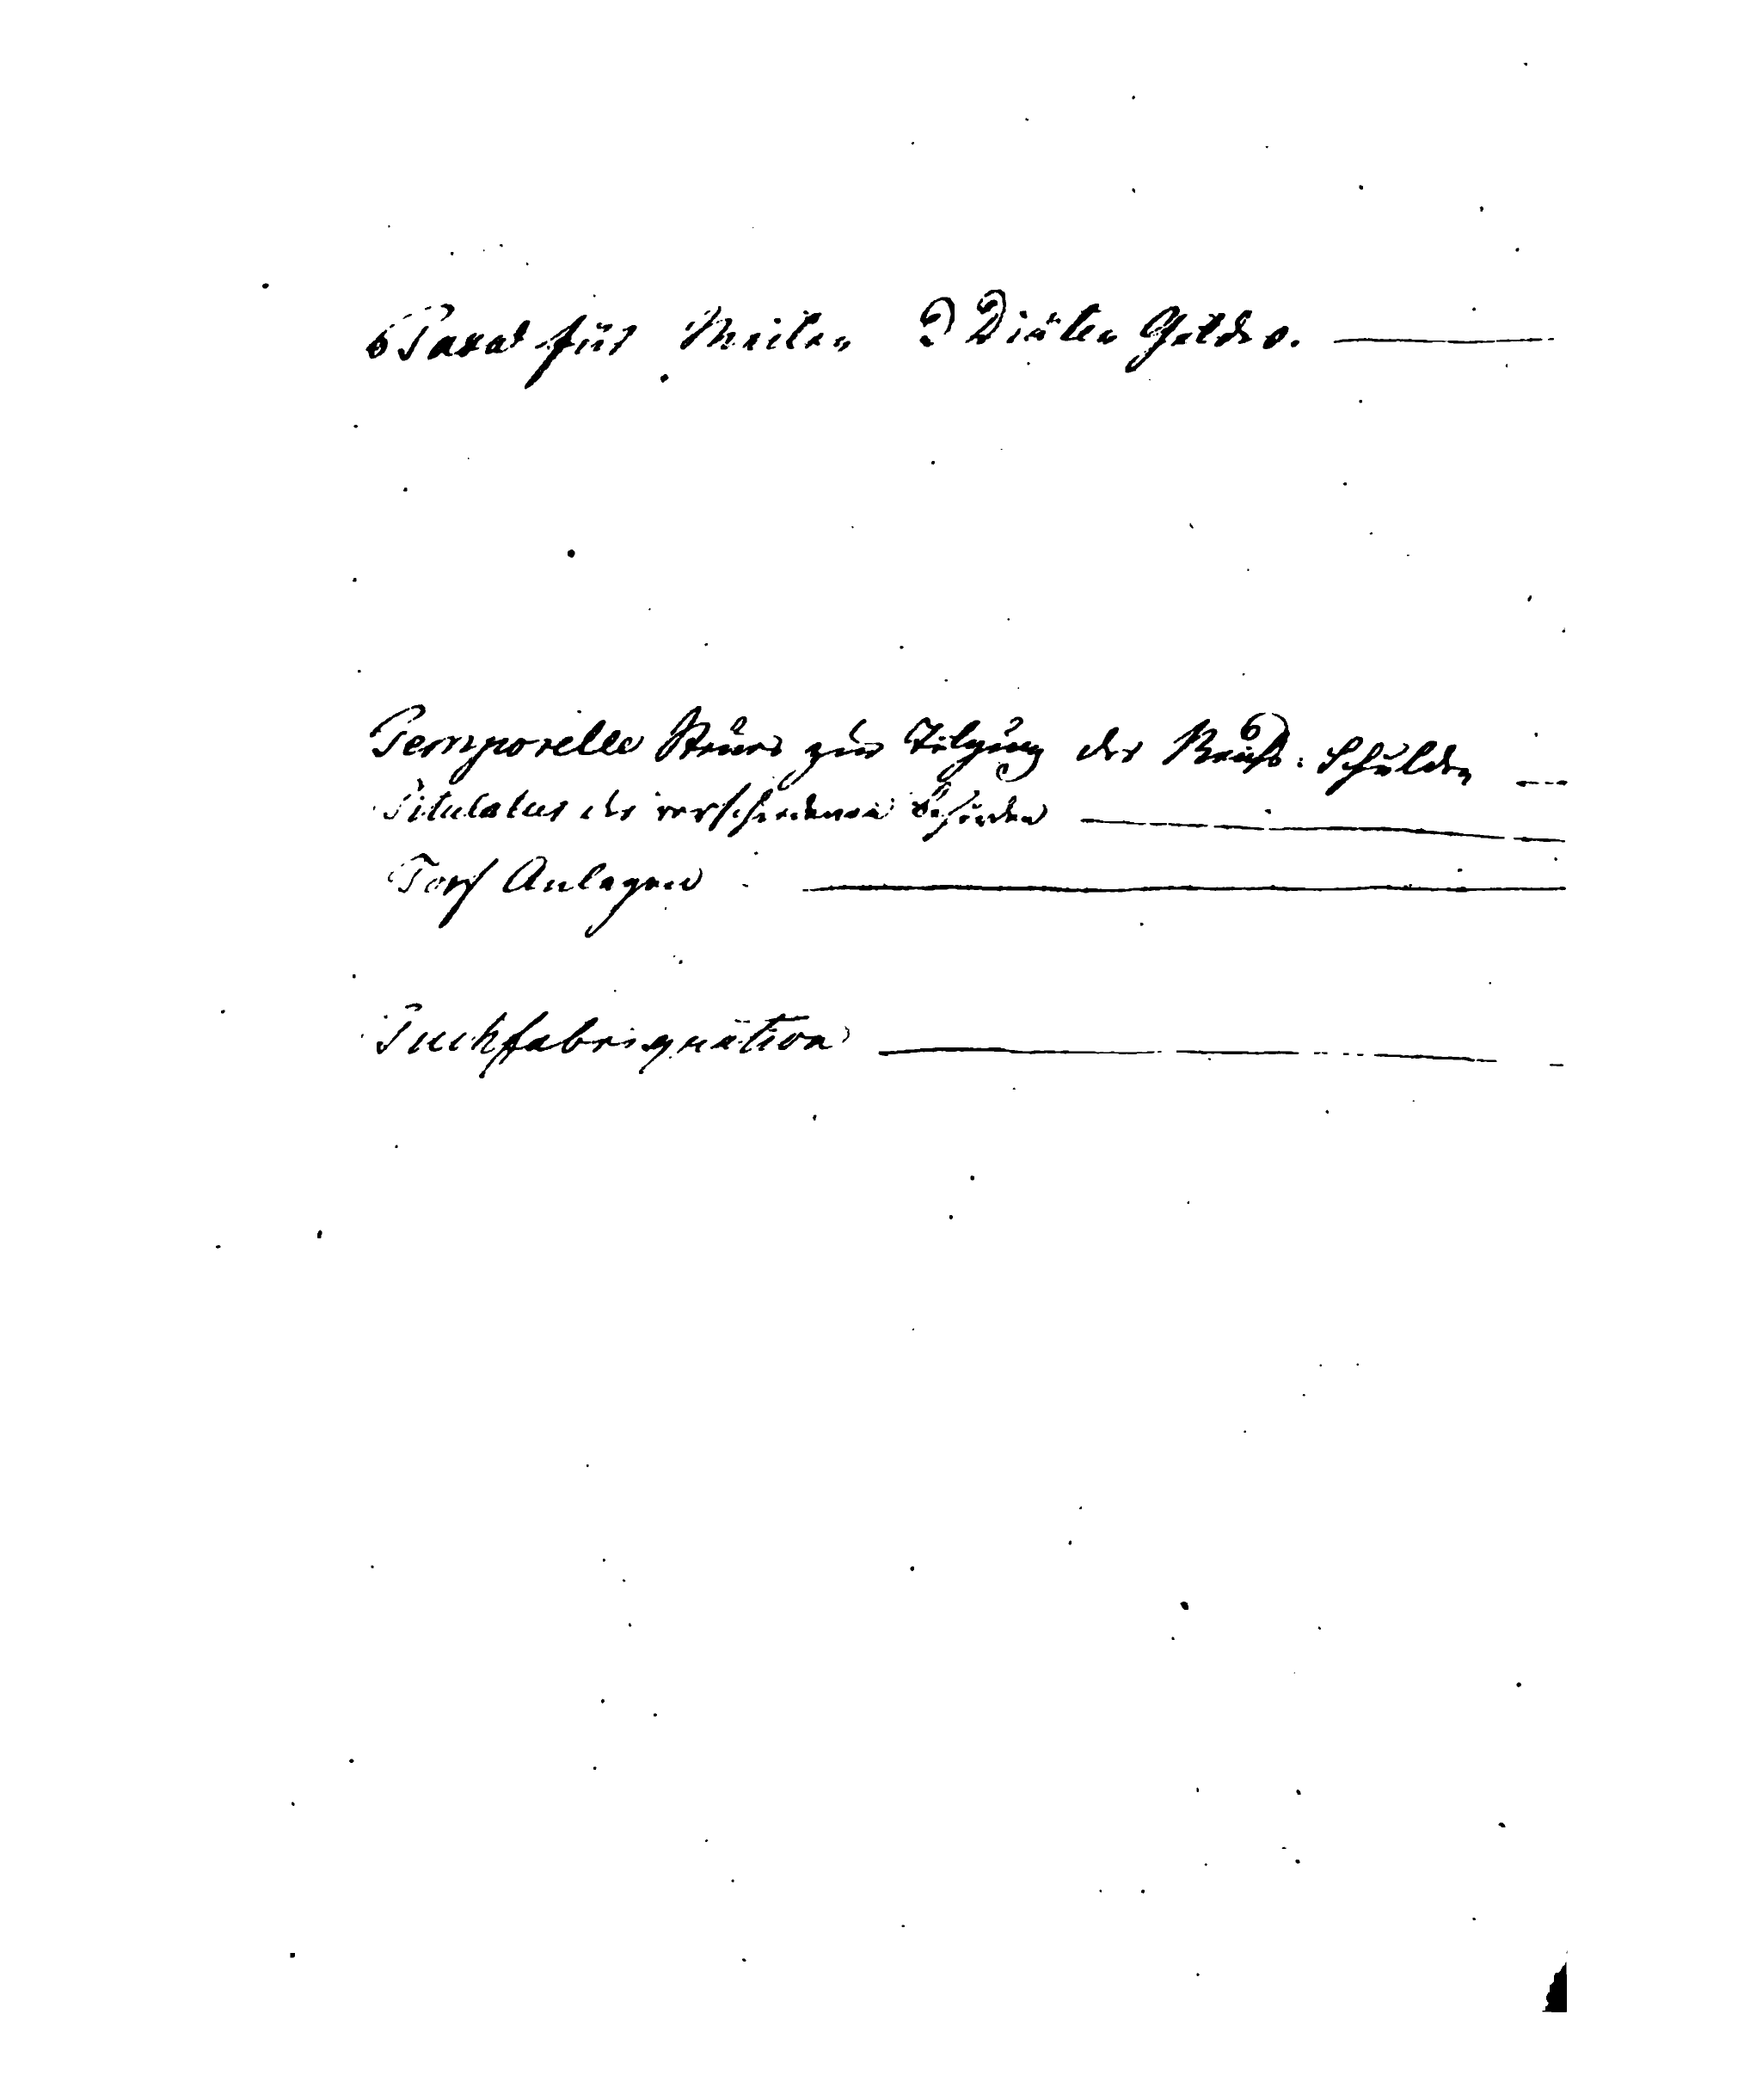 Taxe für Meilen & Diäten Gelder.
Temporelle Steuer zur Tilgung der Kriegs-Schulden
Titulatur der verschiedenen Behörden
Torf Anlagen
Tuchfabriquation